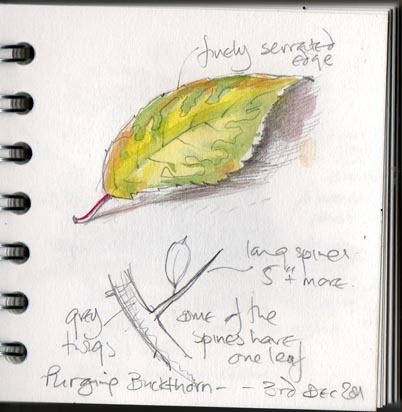 finely serrated
edge
long spines
5" + more.
grey
twigs
some of the
spines have
one leaf
Purging Buckthorn - - 3rd Dec 201